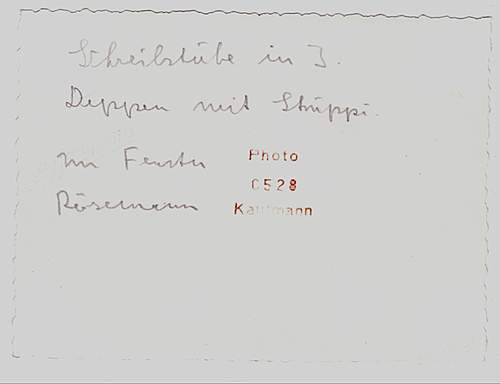 Schreibstube in J.
Deppen mit Struppi.
im Fenster
Rösemann
Photo
C528
Kaufmann